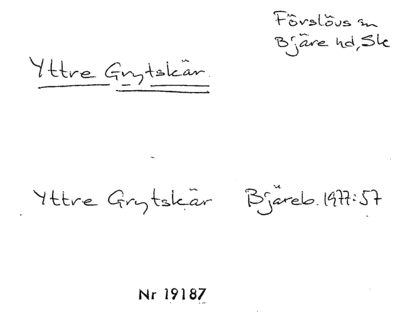 Förslövs sn
Bjäre hd, Sk
Yttre Grytskär.
Yttre Grytskär Bjäreb. 1977:57
Nr 19187